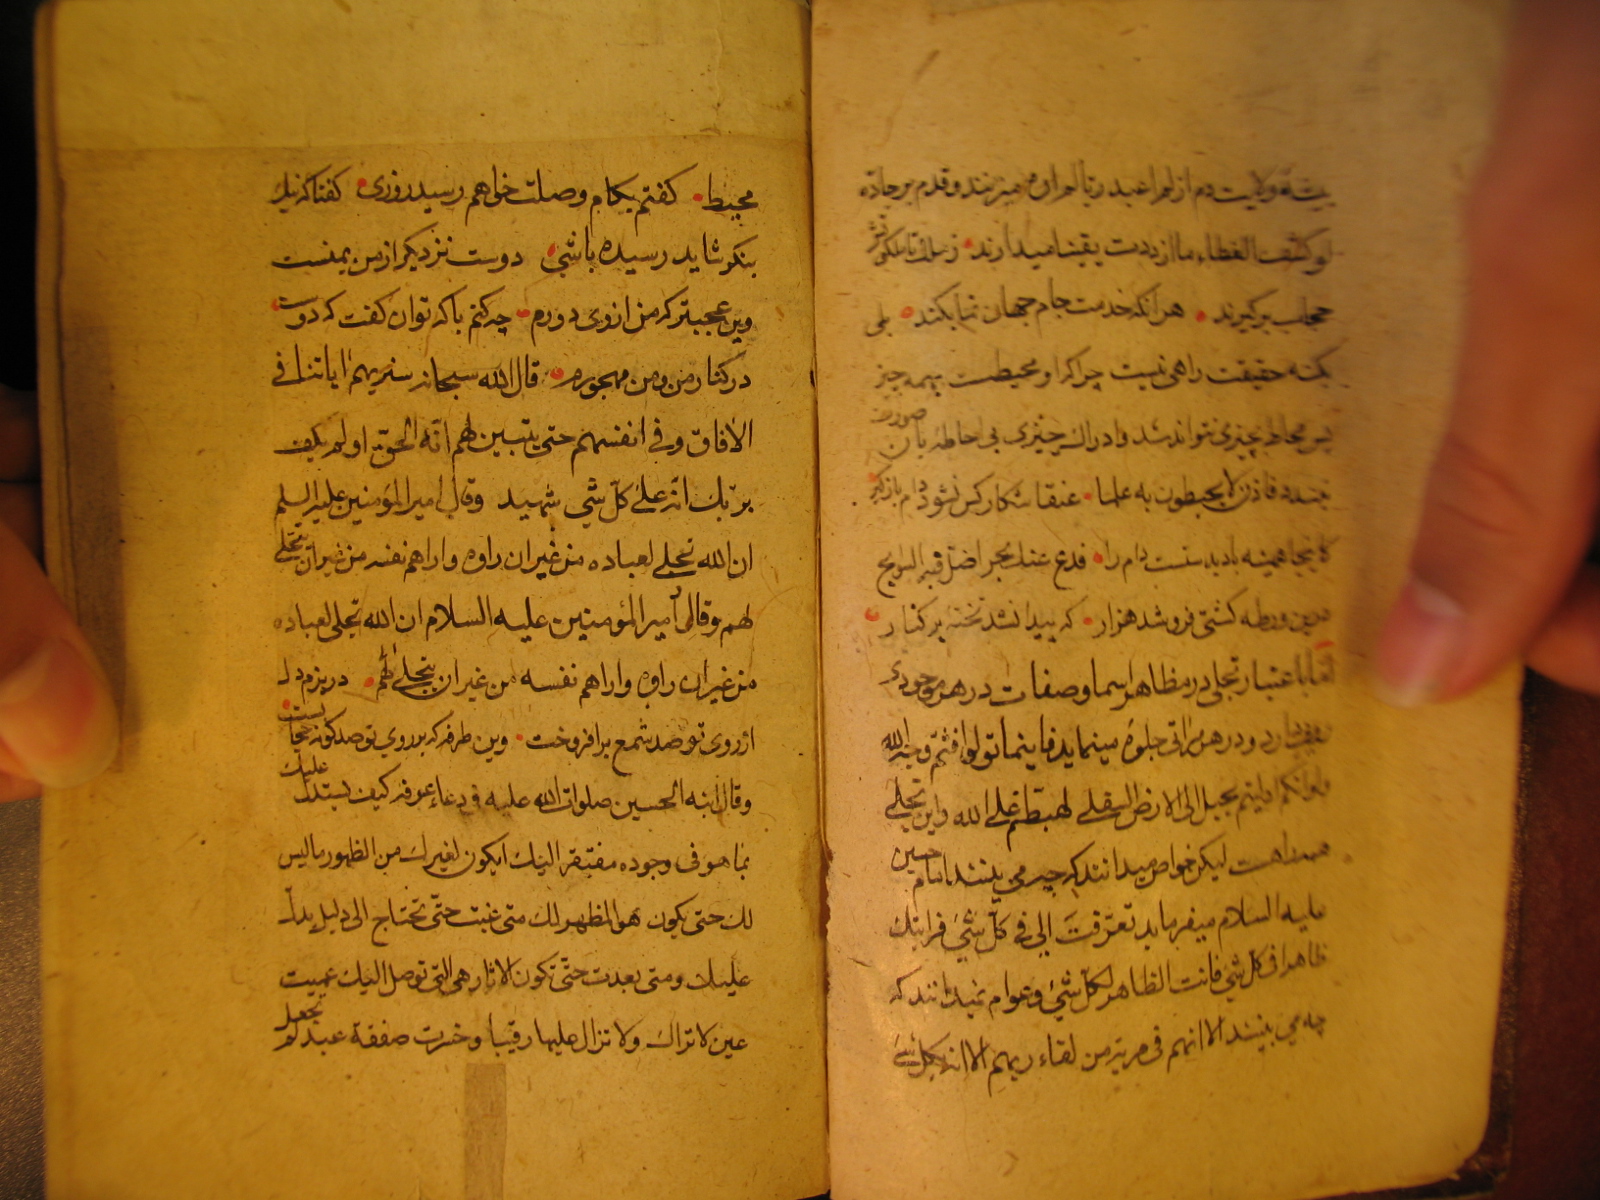 ولایت دم از لم اعبد ربا لم اره میزنند و قدم بر جاده
لو کشف الغطاء ما ازددت یقینا میدارند
حجاب برگیرند هر آنکه خدمت جام جهان نما بکند بلی
بکنه حقیقت راهی نیست چرا که او محیطست بهمه چیز
پس محاط بچیزی نتواند شد و ادراک چیزی بی احاطه بآن صورت
نبندد فاذن لا یحیطون به علما عنقا شکار کس نشود دام بازگیر
کاینجا همیشه باد بدستست دام را فدع عنک بحرا ضل فیه السوابح
درین ورطه کشتی فرو شد هزار که پیدا نشد تخته بر کنار
اما باعتبار تجلی در مظاهر اسما و صفات در هر موجودی
رویی دارد و در هر مرآتی جلوه مینماید فاینما تولوا فثم وجه الله
ولو انکم دلیتم بحبل الی الارض السفلی لهبط علی الله و این تجلی
همه را هست لیکن خواص میدانند که چه می بینند امام حسین
علیه السلام میفرماید تعرفت الی فی کل شیء فرایتک
ظاهرا فی کل شیء فانت الظاهر لکل شیء و عوام نمیدانند که
چه می بینند الا انهم فی مریة من لقاء ربهم الا انه بکل شیء
محیط کفتم بکام وصلت خواهم رسید روزی کفتا که نیک
بنکر شاید رسیده باشی دوست نزدیکتر از من بمنست
وین عجبتر که من از وی دورم چه کنم با که توان کفت که دوست
در کنار من و من مهجورم قال الله سبحانه سنریهم ایاتنا فی
الافاق و فی انفسهم حتی یتبین لهم انه الحق او لم یکف
بربک انه علی کل شی شهید وقال امیر المؤمنین علیه السلم
ان الله تجلی لعباده من غیر ان راوه و اراهم نفسه من غیر ان یتجلی
لهم وقال امیر المؤمنین علیه السلام ان الله تجلی لعباده
من غیر ان راوه و اراهم نفسه من غیر ان یتجلی لهم در بزم دل
از روی تو صد شمع برافروخت وین طرفه که بر روی تو صد کونه حجابست
وقال ابنه الحسین صلوات الله علیه فی دعاء عرفه کیف یستدل علیک
بما هو فی وجوده مفتقر الیک ایکون لغیرک من الظهور ما لیس
لک حتی یکون هو المظهر لک متی غبت حتی تحتاج الی دلیل یدل
علیک ومتی بعدت حتی تکون الاثار هی التی توصل الیک عمیت
عین لا تراک ولا تزال علیها رقیبا وخسرت صفقة عبد لم تجعل